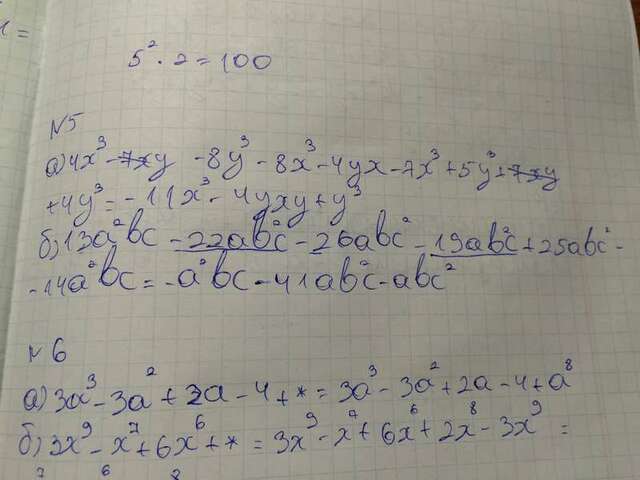 5² · 2 = 100
N5
а) 4x³ - 7xy - 8y³ - 8x³ - 4yx - 7x³ + 5y³ + 7xy
+ 4y³ = -11x³ - 4yxy + y³
б) 13a²bc - 22ab²c - 26abc² - 19ab²c + 25abc² -
- 14a²bc = -a²bc - 41ab²c - abc²
N6
а) 3a³ - 3a² + 2a - 4 + * = 3a³ - 3a² + 2a - 4 + a⁸
б) 3x⁹ - x⁷ + 6x⁶ + * = 3x⁹ - x⁷ + 6x⁶ + 2x⁸ - 3x⁹ =